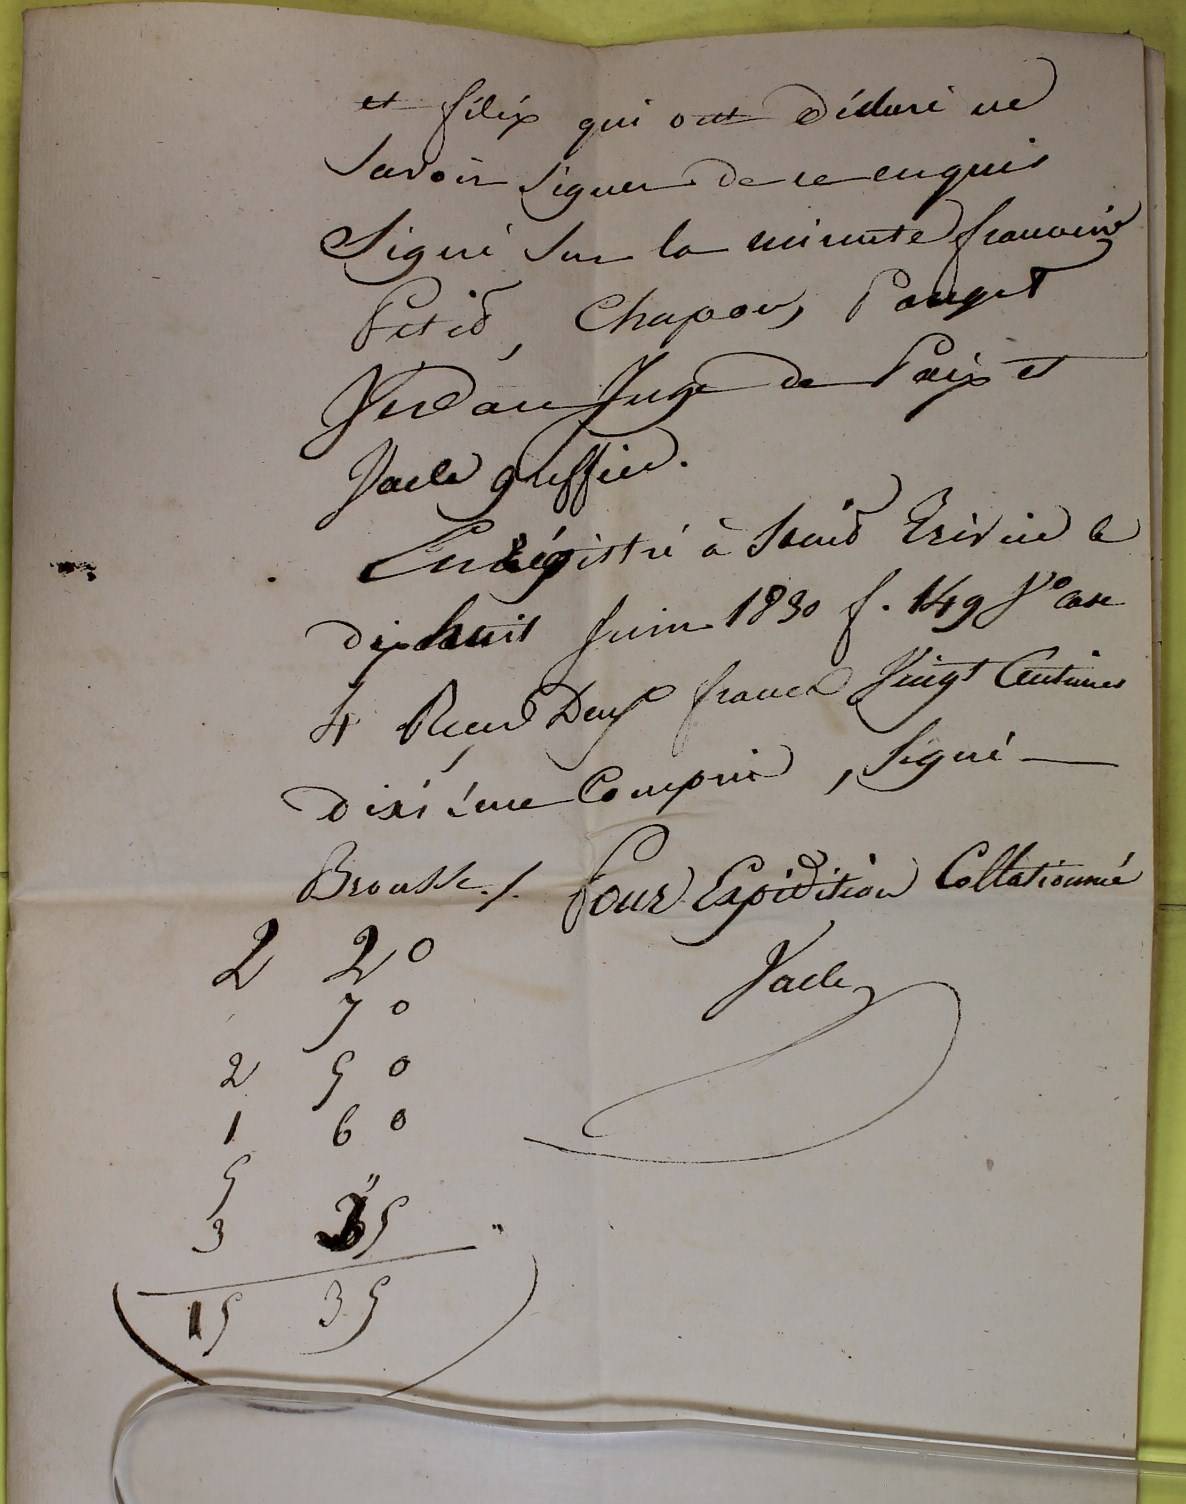 et félix qui ont déclaré ne
Savoir Signer de ce enquis
Signé Sur la minute françois
Petit, Chapou, Pouget
Verdau Juge de Paix et
Vacle greffier.
Enrégistré à Saint Trivier le
dix huit Juin 1830 f. 149 Vo Case
4 Reçu Deux francs Vingt Centimes
dixième Compris, Signé
Brousse./. Pour Expédition Collationnée
Vacle
2 20
70
2 50
1 60
5 "
3 35
15 35